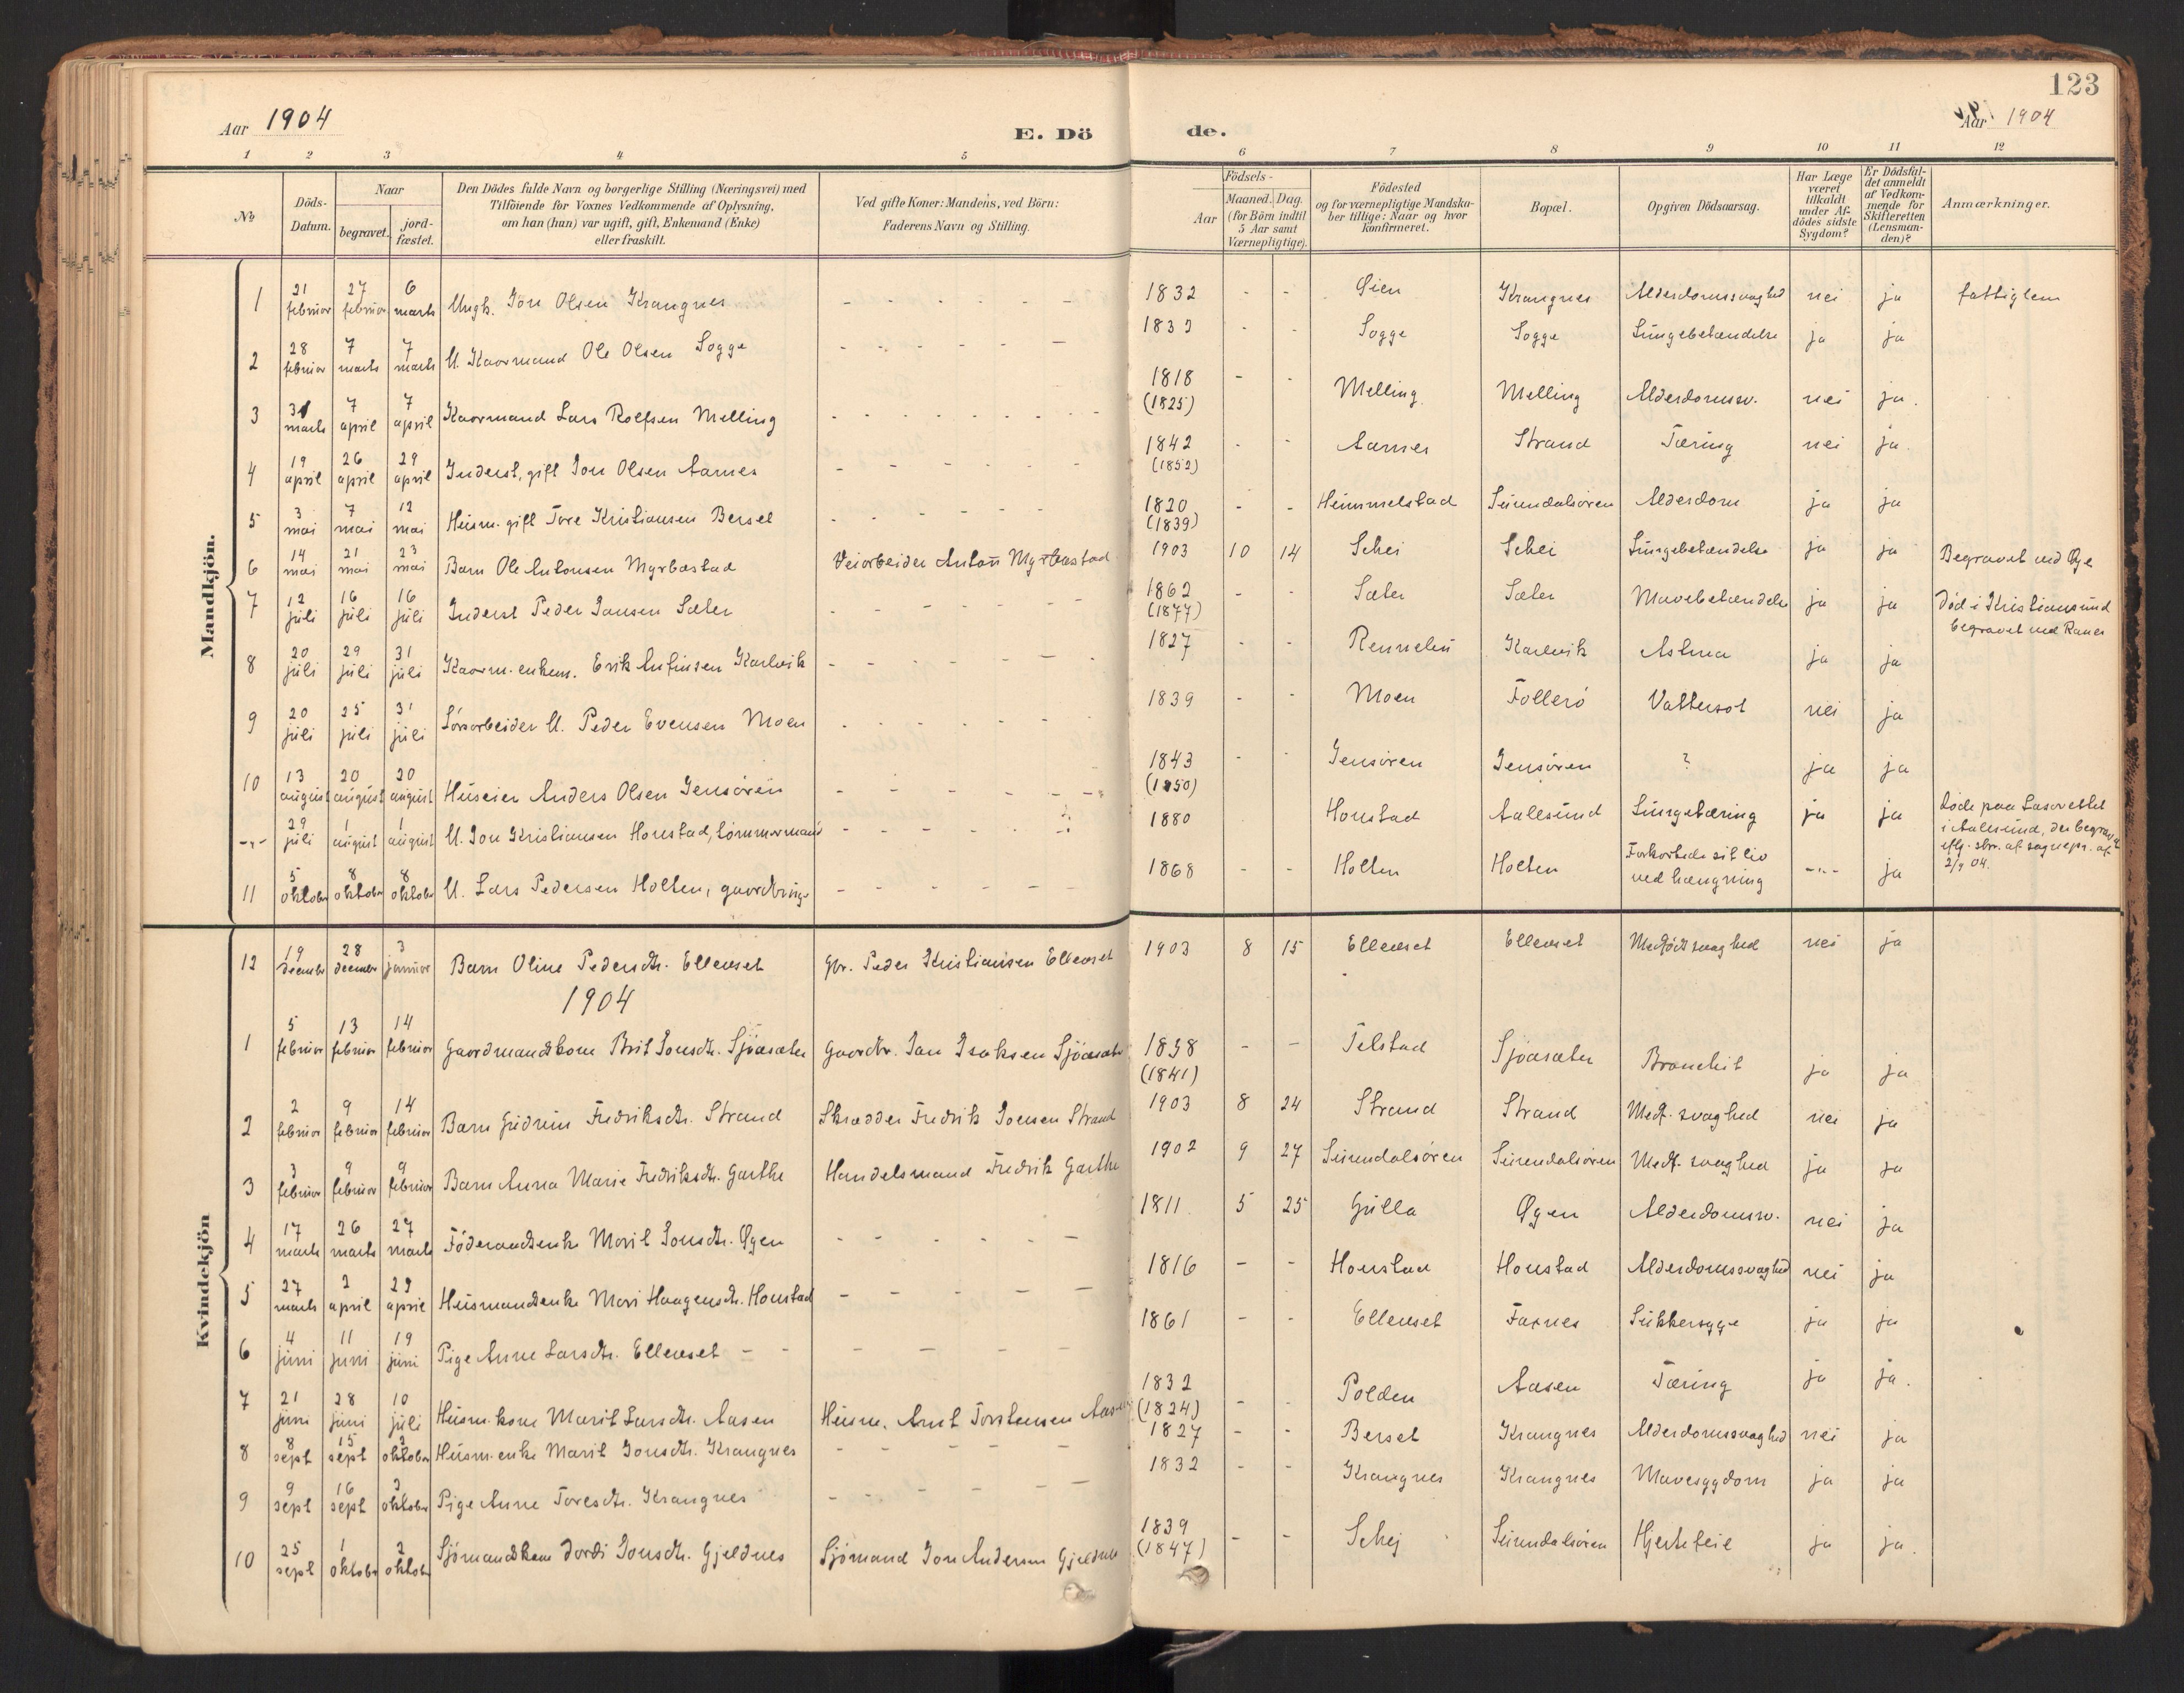 123
Aar 1904
E. Dö
de.
Aar 1904
1 2 3 4 5 6 7 8 9 10 11 12
No
Döds-Datum.
Naar
begravet.
jord-fæstet.
Den Dödes fulde Navn og borgerlige Stilling (Næringsvei) med
Tilföiende for Voxnes Vedkommende af Oplysning,
om han (hun) var ugift, gift, Enkemand (Enke)
eller fraskilt.
Ved gifte Koner: Mandens, ved Börn:
Faderens Navn og Stilling.
Födsels-
Aar
Maaned. Dag.
(for Börn indtil
5 Aar samt
Værnepligtige).
Födested
og for værnepligtige Mandska-
ber tillige: Naar og hvor
konfirmeret.
Bopæl.
Opgiven Dödsaarsag.
Har Læge
været
tilkaldt
under Af-
dödes sidste
Sygdom?
Er Dödsfal-
det anmeldt
af Vedkom-
mende for
Skifteretten
(Lensman-
den)?
Anmærkninger.
Mandkjön.
1 21 februar 27 februar 6 marts Ungk. Jon Olsen Krangnes - - - - - 1832 - - Øien Krangnes Alderdomssvaghed nei ja fattiglem
2 28 februar 7 marts 7 marts U. Kaarmand Ole Olsen Sogge - - - - - 1832 - - Sogge Sogge Lungebetændelse ja ja
3 31 marts 7 april 7 april Kaarmand Lars Rolfsen Melling - - - - - 1818 (1825) - - Melling Melling Alderdomssv. nei ja.
4 19 april 26 april 29 april Inderst, gift Jon Olsen Aarnes - - - - - 1842 (1852) - - Aarnes Strand Tæring nei ja.
5 3 mai 7 mai 12 mai Husm. gift Tore Kristiansen Berset - - - - - 1820 (1839) - - Hemmelstad Surendalsören Alderdom ja ja
6 14 mai 21 mai 23 mai Barn Ole Antonsen Myrbæstad Veiarbeider Anton Myrbæstad 1903 10 14 Schei Schei Lungebetændelse ja ja Begravet ved Øye
7 12 juli 16 juli 16 juli Inderst Peder Jansen Sæter - - - - - 1862 (1877) - - Sæter Sæter Mavebetændelse ja ja Död i Kristiansund
begravet ved Ranes
8 20 juli 29 juli 31 juli Kaarm. enkem. Erik Anfinsen Karlvik - - - - - 1827 - - Rennelin Karlvik Astma ja ja
9 20 juli 25 juli 31 juli Lösarbeider U. Peder Evensen Moen - - - - - 1839 - - Moen Follerö Vattersot nei ja
10 13 august 20 august 20 august Huseier Anders Olsen Jensören - - - - - 1843 (1850) - - Jensören Jensören ? ja ja
-„- 29 juli 1 august 1 august U. Jon Kristiansen Honstad, tömmermand - - - - - 1880 Honstad Aalesund Lungetæring ja ja döde paa Lasarettet
i Aalesund, der begravet
eflg. skr. af sognepr. af
2/9 04.
11 5 oktober 8 oktober 8 oktober U. Lars Pedersen Holten, gaardbrug. - - - - - 1868 - - Holten Holten Forkortede sit liv
ved hængning -„- ja
Kvindekjön
12 19 december 28 december 3 januar Barn Oline Pedersdtr. Ellevset Gbr. Peder Kristiansen Ellevset 1903 8 15 Ellevset Ellevset Medfödt svaghed nei ja
1904
1 5 februar 13 februar 14 februar Gaardmandskone Brit Jonsdtr. Sjöasæter Gaardbr. Jan Isaksen Sjöasæter 1838 (1841) - - Telstad Sjöasæter Bronchit ja ja
2 2 februar 9 februar 14 februar Barn Gudrun Fredriksdtr. Strand Skrædder Fredrik Joensen Strand 1903 8 24 Strand Strand Medf. svaghed nei ja
3 3 februar 9 februar 9 februar Barn Anna Marie Fredriksdtr. Garthe Handelsmand Fredrik Garthe 1902 9 27 Surendalsören Surendalsören Medf. svaghed ja ja
4 17 marts 26 marts 27 marts Föderaadsenke Marit Jonsdtr. Øyen - - - - - 1811 5 25 Gulla Øyen Alderdomssv. nei ja
5 27 marts 2 april 29 april Husmandsenke Mari Haagensdtr. Honstad - - - - - 1816 - - Honstad Honstad Alderdomssvaghed nei ja
6 4 juni 11 juni 19 juni Pige Anne Larsdtr. Ellevset - - - - - 1861 - - Ellevset Farnes Sukkersyge ja ja
7 21 juni 28 juni 10 juli Husm. kone Marit Larsdtr. Aasen Husm. Arnt Torstensen Aasen 1832 (1824) - - Polden Aasen Tæring ja ja.
8 8 sept 15 sept 2 oktober Husm. enke Marit Jonsdtr. Krangnes - - - - - 1827 - - Berset Krangnes Alderdomssvaghed nei ja
9 9 sept 16 sept 2 oktober Pige Anne Toresdtr. Krangnes - - - - - 1832 - - Krangnes Krangnes Mavesygdom ja ja
10 25 sept 1 oktober 2 oktober Sjömandskone Dordi Jonsdtr. Gjeldnes Sjömand Jon Andersen Gjeldnes 1839 (1847) - - Schej Surendalsören Hjertefeil ja ja.